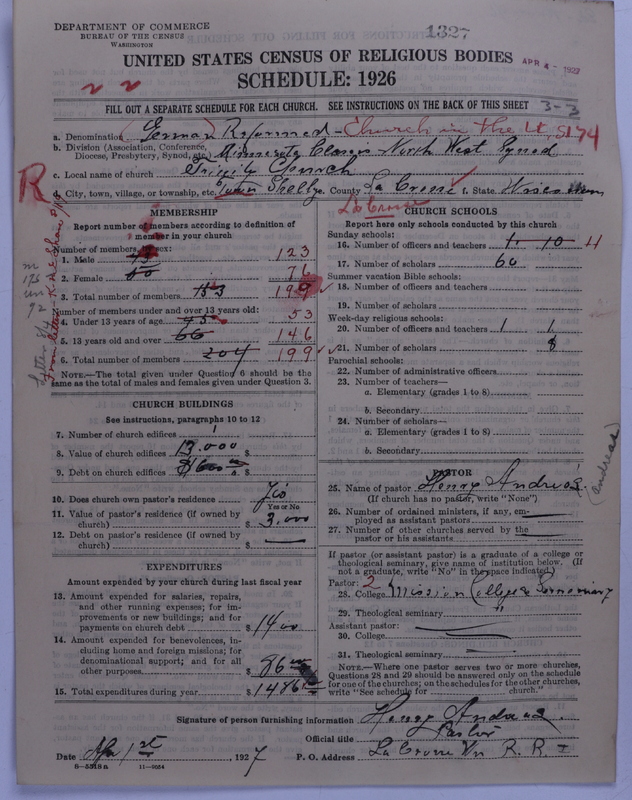 DEPARTMENT OF COMMERCE
BUREAU OF THE CENSUS
WASHINGTON
1327
UNITED STATES CENSUS OF RELIGIOUS BODIES
APR 4 - 1927
SCHEDULE: 1926
2 2
FILL OUT A SEPARATE SCHEDULE FOR EACH CHURCH. SEE INSTRUCTIONS ON THE BACK OF THIS SHEET
3-3
a. Denomination German Reformed - Church in the U.S. 174
b. Division (Association, Conference, Diocese, Presbytery, Synod, etc.) Minnesota Classis North West Synod
c. Local name of church Trinity Church
d. City, town, village, or township, etc. Town Shelby e. County La Crosse f. State Wisconsin
R
La Crosse
MEMBERSHIP
Report number of members according to definition of member in your church
Number of members by sex:
1. Male 123
2. Female 76
3. Total number of members 153 199
Number of members under and over 13 years old:
4. Under 13 years of age 53
5. 13 years old and over 66 146
6. Total number of members 204 199
NOTE.—The total given under Question 6 should be the same as the total of males and females given under Question 3.
CHURCH BUILDINGS
See instructions, paragraphs 10 to 12
7. Number of church edifices 1
8. Value of church edifices 13.000 $
9. Debt on church edifices $
10. Does church own pastor's residence Yes
Yes or No
11. Value of pastor's residence (if owned by church) $ 3.000
12. Debt on pastor's residence (if owned by church) $ —
EXPENDITURES
Amount expended by your church during last fiscal year
13. Amount expended for salaries, repairs, and other running expenses; for improvements or new buildings; and for payments on church debt $ 1400
14. Amount expended for benevolences, including home and foreign missions; for denominational support; and for all other purposes $ 86
15. Total expenditures during year $ 1486
CHURCH SCHOOLS
Report here only schools conducted by this church
Sunday schools:
16. Number of officers and teachers 1 10 11
17. Number of scholars 60
Summer vacation Bible schools:
18. Number of officers and teachers
19. Number of scholars
Week-day religious schools:
20. Number of officers and teachers 1 1
21. Number of scholars 8
Parochial schools:
22. Number of administrative officers
23. Number of teachers—
a. Elementary (grades 1 to 8)
b. Secondary
24. Number of scholars—
a. Elementary (grades 1 to 8)
b. Secondary
PASTOR
25. Name of pastor Henry Andreas
(andreas)
(If church has no pastor, write "None")
26. Number of ordained ministers, if any, employed as assistant pastors —
27. Number of other churches served by the pastor or his assistants —
If pastor (or assistant pastor) is a graduate of a college or theological seminary, give name of institution below. (If not a graduate, write "No" in the space indicated.)
Pastor: 2
28. College Mission College Seminary
29. Theological seminary "
Assistant pastor:
30. College
31. Theological seminary
NOTE.—Where one pastor serves two or more churches, Questions 28 and 29 should be answered only on the schedule for one of the churches; on the schedules for the other churches, write "See schedule for church."
Signature of person furnishing information Henry Andreas
Official title Pastor
Date Apr 1st, 1927 P. O. Address La Crosse Wis R. R. 1
8-5318a 11-9554